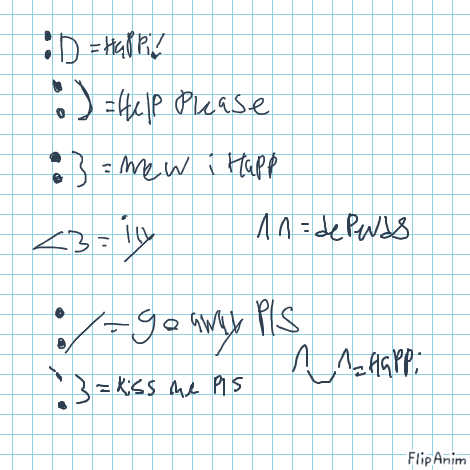 :D = HaPPi!
:) = HElP PlEASE
:3 = mew i HaPP
<3 = ily
^^ = dePends
:/ = go away PlS
^_^ = HaPPi
;3 = kiss me PlS
FlipAnim